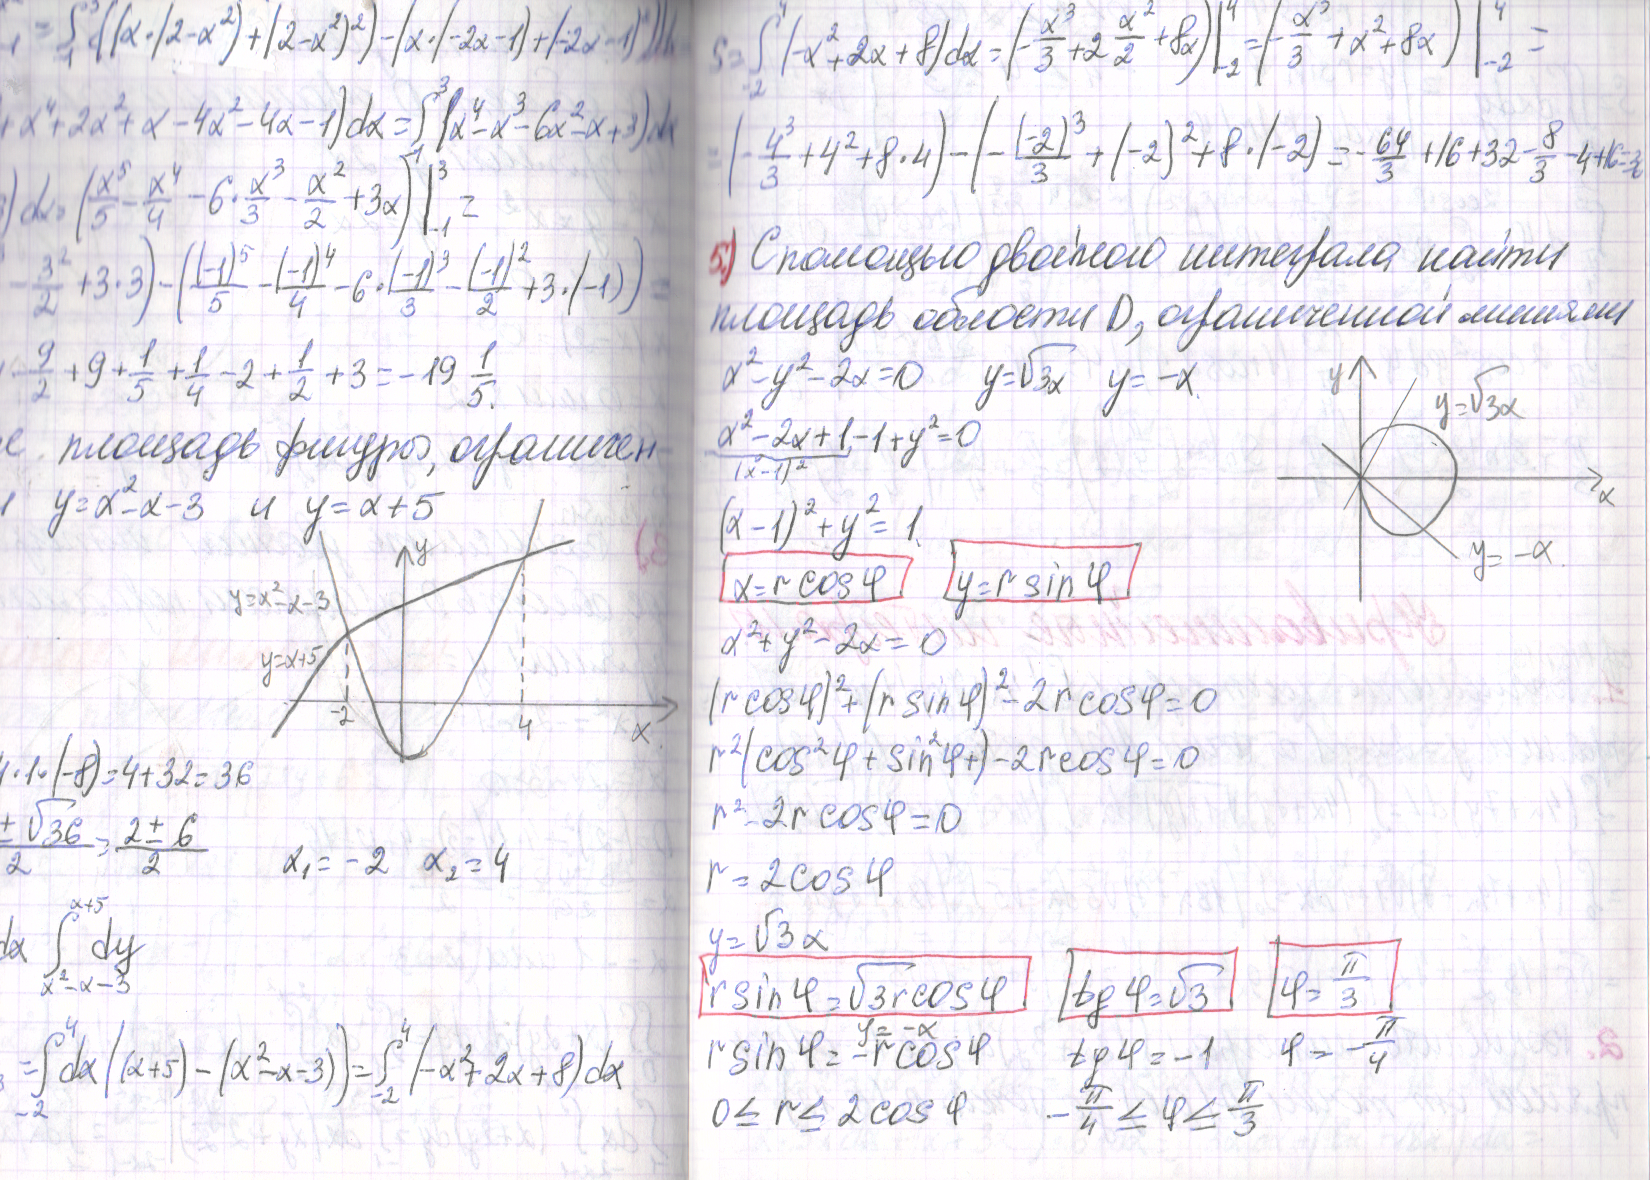 = ∫₋₁³ ((x·(2-x²)+(2-x²)²)-(x·(-2x-1)+(-2x-1)²))d
+x⁴+2x²+x-4x²-4x-1)dx=∫₋₁³(x⁴-x³-6x²-x+3)dx
)dx=(x⁵/5-x⁴/4-6·x³/3-x²/2+3x)|₋₁³=
-3²/2+3·3)-((-1)⁵/5-(-1)⁴/4-6·(-1)³/3-(-1)²/2+3·(-1))=
-9/2+9+1/5+1/4-2+1/2+3=-19 1/5.
площадь фигуры, ограничен-
y=x²-x-3 и y=x+5
y
y=x²-x-3
y=x+5
-2 4 x
4·1·(-8)=4+32=36
±√36/2=2±6/2 x₁=-2 x₂=4
dx ∫_{x²-x-3}^{x+5} dy
=∫₋₂⁴dx((x+5)-(x²-x-3))=∫₋₂⁴(-x²+2x+8)dx
S=∫₋₂⁴(-x²+2x+8)dx=(-x³/3+2x²/2+8x)|₋₂⁴=(-x³/3+x²+8x)|₋₂⁴=
=(-4³/3+4²+8·4)-(-(-2)³/3+(-2)²+8·(-2)=-64/3+16+32-8/3-4+16=36
5.) С помощью двойного интеграла найти
площадь области D, ограниченной линиями
x²-y²-2x=0 y=√3x y=-x
x²-2x+1-1+y²=0
(x-1)²
(x-1)²+y²=1.
y
y=√3x
x
y=-x.
x=r cosφ y=r sinφ
x²+y²-2x=0
(r cosφ)²+(r sinφ)²-2r cosφ=0
r²(cos²φ+sin²φ+)-2r cosφ=0
r²-2r cosφ=0
r=2cosφ
y=√3x
r sinφ=√3 r cosφ tgφ=√3 φ=π/3
y=-x
r sinφ=-r cosφ tgφ=-1 φ=-π/4
0≤r≤2cosφ -π/4≤φ≤π/3